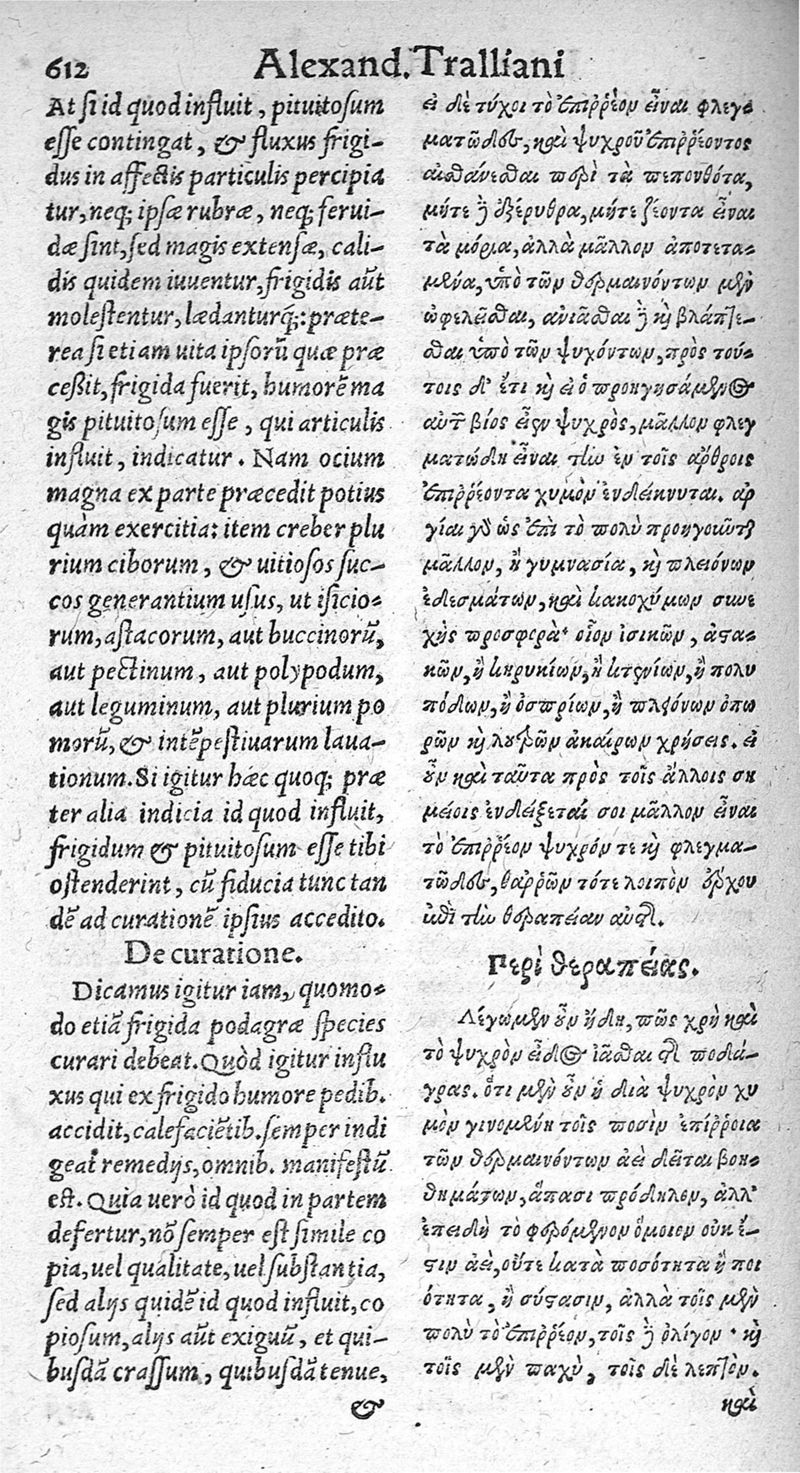 612
Alexand. Tralliani
At si id quod influit, pituitosum
esse contingat, & fluxus frigi-
dus in affectis particulis percipia
tur, neq; ipsæ rubræ, neq; ferui-
dæ sint, sed magis extensæ, cali-
dis quidem iuuentur, frigidis aūt
molestentur, lædanturq́;: præte-
rea si etiam uita ipsorū quæ præ
ceßit, frigida fuerit, humorē ma
gis pituitosum esse, qui articulis
influit, indicatur. Nam ocium
magna ex parte præcedit potius
quàm exercitia: item creber plu
rium ciborum, & uitiosos suc-
cos generantium usus, ut isicio-
rum, astacorum, aut buccinorū,
aut pectinum, aut polypodum,
aut leguminum, aut plurium po
morū, & intēpestiuarum laua-
tionum. Si igitur hæc quoq; præ
ter alia indicia id quod influit,
frigidum & pituitosum esse tibi
ostenderint, cū fiducia tunc tan
dē ad curationē ipsius accedito.
De curatione.
Dicamus igitur iam, quomo-
do etiā frigida podagræ species
curari debeat. Quòd igitur influ
xus qui ex frigido humore pedib.
accidit, calefaciētib. semper indi
geat remedijs, omnib. manifestū
est. Quia uerò id quod in partem
defertur, nō semper est simile co
pia, uel qualitate, uel substantia,
sed alijs quidē id quod influit, co
piosum, alijs aūt exiguū, et qui-
busdā crassum, quibusdā tenue,
&
εἰ δὲ τύχοι τὸ ἐπιῤῥέον εἶναι φλεγ-
ματῶδες, καὶ ψυχροῦ ἐπιῤῥέοντος
αἰσθάνεσθαι περὶ τὰ πεπονθότα,
μήτε ἢ ἐξέρυθρα, μήτε ζέοντα εἶναι
τὰ μόρια, ἀλλὰ μᾶλλον ἀποτετα-
μένα, ὑπὸ τῶν θερμαινόντων μὲν
ὠφελεῖσθαι, ἀνιᾶσθαι ἢ καὶ βλάπτε-
σθαι ὑπὸ τῶν ψυχόντων, πρὸς τού-
τοις δ' ἔτι καὶ εἰ ὁ προηγησάμενος
αὐτοῦ βίος εἴη ψυχρὸς, μᾶλλον φλεγ
ματώδη εἶναι τὸν ἐν τοῖς ἄρθροις
ἐπιῤῥέοντα χυμὸν ἐνδείκνυται. ἀρ
γίαι γὰρ ὡς ἐπὶ τὸ πολὺ προηγοῦνται
μᾶλλον, ἢ γυμνασία, καὶ πλειόνων
ἐδεσμάτων, καὶ κακοχύμων συνε
χὴς προσφορὰ· οἷον ἰσικῶν, ἀστα-
κῶν, ἢ κηρυκίων, ἢ κτενίων, ἢ πολυ
πόδων, ἢ ὀσπρίων, ἢ πλειόνων ὀπω
ρῶν καὶ λουτρῶν ἀκαίρων χρήσεις. εἰ
οὖν καὶ ταῦτα πρὸς τοῖς ἄλλοις ση
μείοις ἐνδείξεταί σοι μᾶλλον εἶναι
τὸ ἐπιῤῥέον ψυχρόν τε καὶ φλεγμα-
τῶδες, θαῤῥῶν τότε λοιπὸν ἔρχου
ἐπὶ τὴν θεραπείαν αὐτοῦ.
Περὶ θεραπείας.
Λέγωμεν οὖν ἤδη, πῶς χρὴ καὶ
τὸ ψυχρὸν εἶδος ἰᾶσθαι τῆς ποδά-
γρας. ὅτι μὲν οὖν ἡ διὰ ψυχρὸν χυ
μὸν γινομένη τοῖς ποσὶν ἐπίῤῥοια
τῶν θερμαινόντων ἀεὶ δεῖται βοη-
θημάτων, ἅπασι πρόδηλον, ἀλλ'
ἐπειδὴ τὸ φερόμενον ὅμοιον οὐκ ἔ-
στιν ἀεὶ, οὔτε κατὰ ποσότητα ἢ ποι
ότητα, ἢ σύστασιν, ἀλλὰ τοῖς μὲν
πολὺ τὸ ἐπιῤῥέον, τοῖς ἢ ὀλίγον· καὶ
τοῖς μὲν παχὺ, τοῖς δὲ λεπτὸν.
καὶ